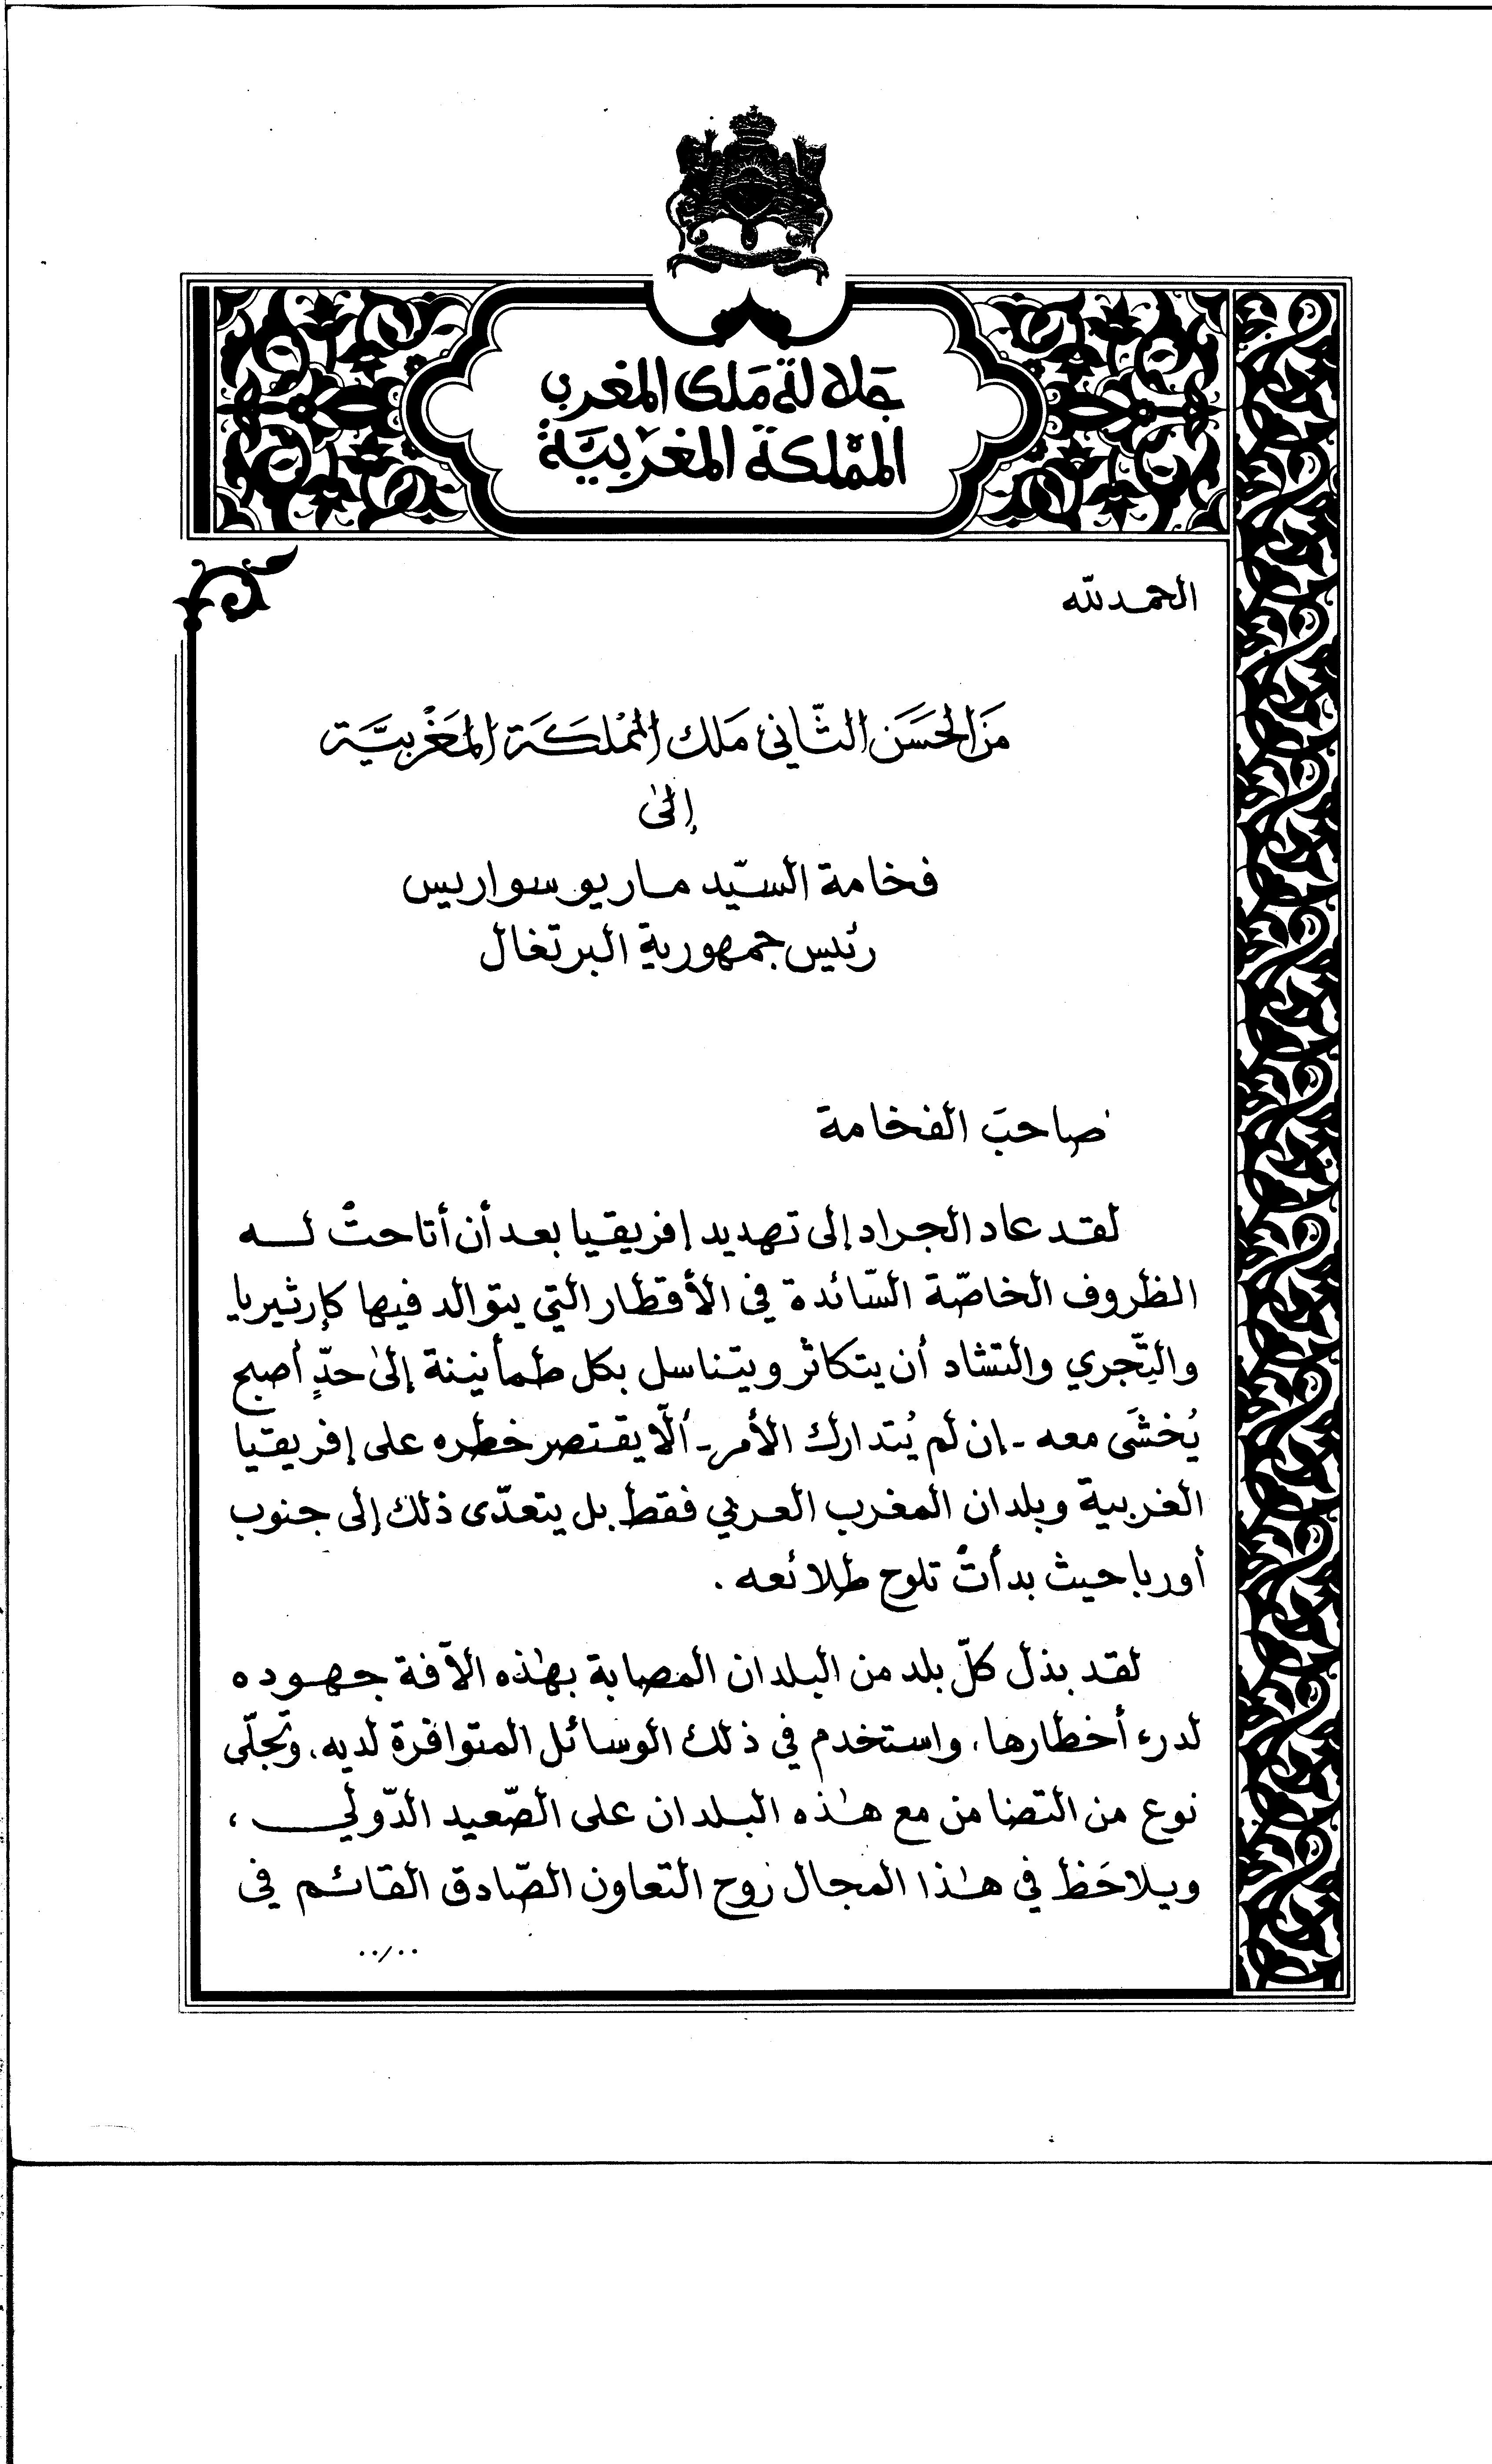 جلالة ملك المغرب
المملكة المغربيّة
الحمد لله
من الحَسَن الثّاني مَلك المْملَكَة المَغْربيَّة
إلى
فخامة السيّد ماريو سواريس
رئيس جمهورية البرتغال
صاحبَ الفخامة
لقد عاد الجراد إلى تهديد إفريقيا بعد أن أتاحتْ لـه
الظروف الخاصّة السّائدة في الأقطار التي يتوالد فيها كإرثيريا
والتّجري والتشاد أن يتكاثر ويتناسل بكل طمأنينة إلى حدٍّ أصبح
يُخشَى معه - إن لم يُتدارك الأمر - ألّا يقتصر خطره على إفريقيا
الغربية وبلدان المغرب العربي فقط بل يتعدّى ذلك إلى جنوب
أوربا حيث بدأتْ تلوح طلائعه .
لقد بذل كلّ بلد من البلدان المصابة بهذه الآفة جهوده
لدرء أخطارها، واستخدم في ذلك الوسائل المتوافرة لديه، وتجلّى
نوع من التضامن مع هذه البلدان على الصّعيد الدّولي ،
ويلاحَظ في هذا المجال روح التعاون الصّادق القائم في
../..